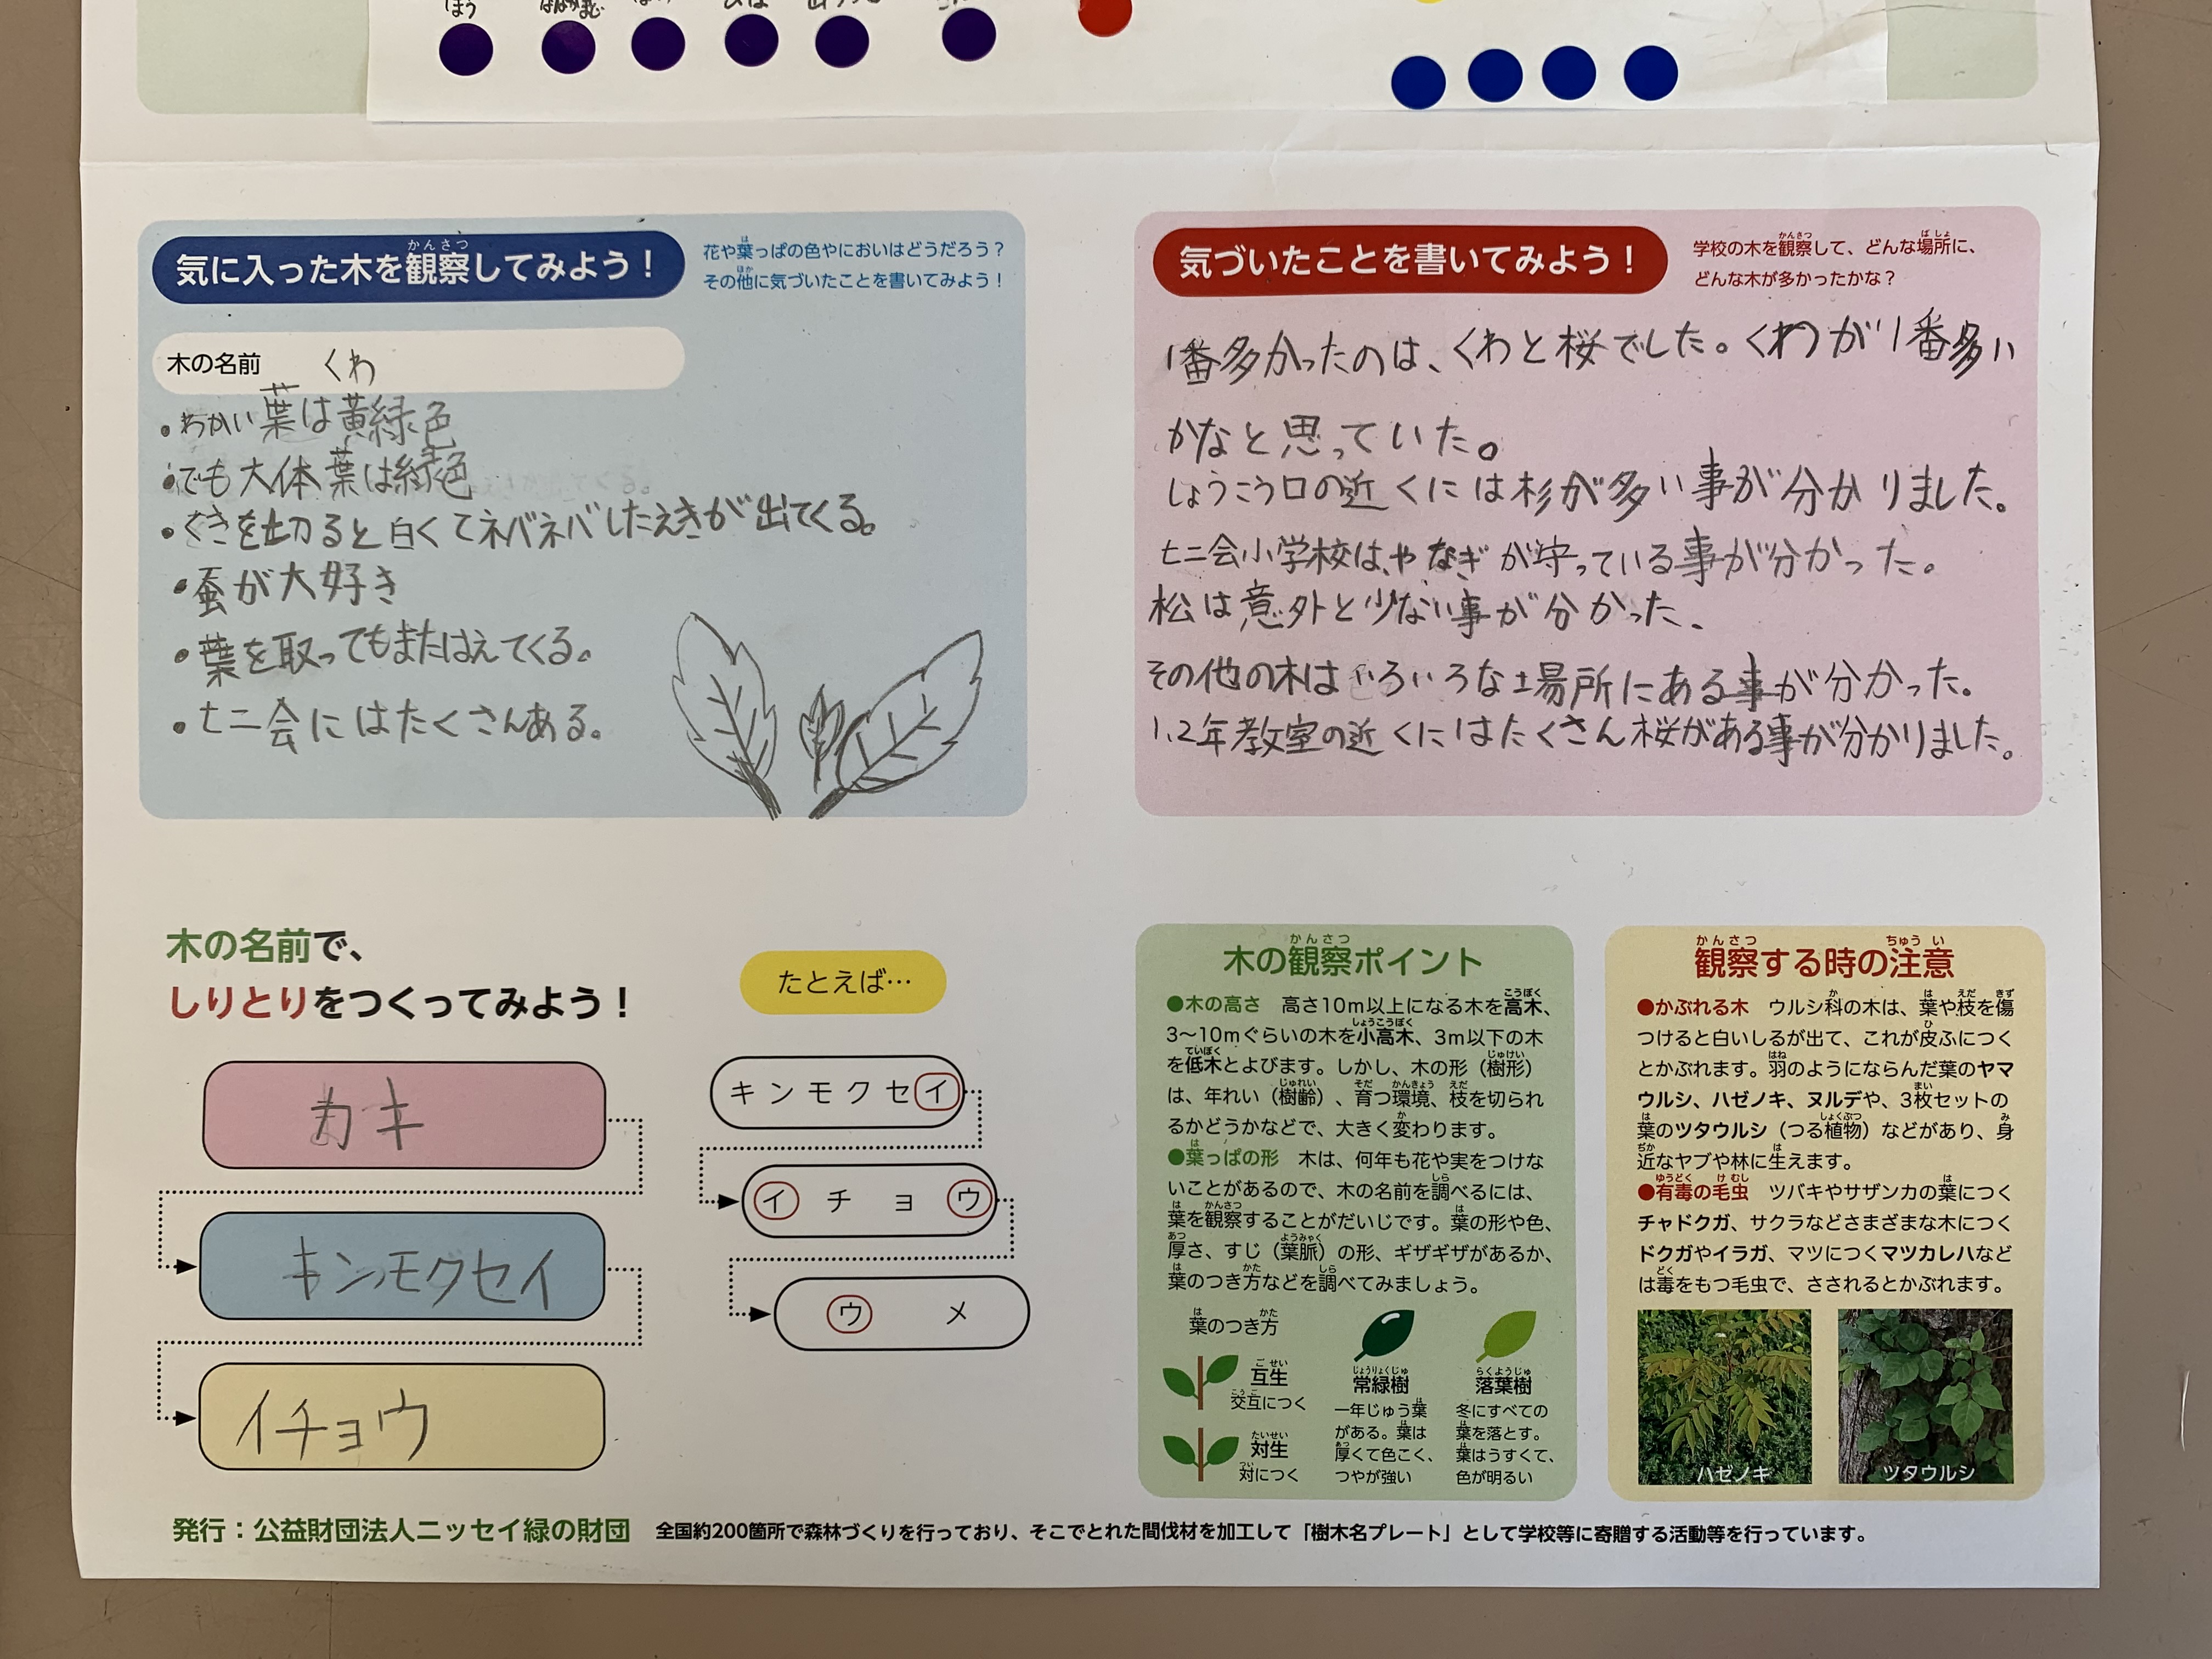 ほう
気に入った木を観察してみよう！
かんさつ
花や葉っぱの色やにおいはどうだろう？
は
その他に気づいたことを書いてみよう！
ほか
木の名前 くわ
・わかい葉は黄緑色
・でも大体葉は緑色
・くきを切ると白くてネバネバしたえきが出てくる。
・蚕が大好き
・葉を取ってもまたはえてくる。
・七二会にはたくさんある。
気づいたことを書いてみよう！
学校の木を観察して、どんな場所に、
かんさつ ばしょ
どんな木が多かったかな？
1番多かったのは、くわと桜でした。くわが1番多い
かなと思っていた。
しょうこう口の近くには杉が多い事が分かりました。
七二会小学校は、やなぎが守っている事が分かった。
松は意外と少ない事が分かった、
その他の木はいろいろな場所にある事が分かった。
1.2年教室の近くにはたくさん桜がある事が分かりました。
木の名前で、
しりとりをつくってみよう！
カキ
キンモクセイ
イチョウ
たとえば…
キンモクセイ
イチョウ
ウメ
木の観察ポイント
かんさつ
●木の高さ 高さ10m以上になる木を高木、
こうぼく
3〜10mぐらいの木を小高木、3m以下の木
しょうこうぼく
を低木とよびます。しかし、木の形（樹形）
ていぼく じゅけい
は、年れい（樹齢）、育つ環境、枝を切られ
じゅれい そだ かんきょう えだ
るかどうかなどで、大きく変わります。
か
●葉っぱの形 木は、何年も花や実をつけな
は
いことがあるので、木の名前を調べるには、
しら
葉を観察することがだいじです。葉の形や色、
は かんさつ は
厚さ、すじ（葉脈）の形、ギザギザがあるか、
あつ ようみゃく
葉のつき方などを調べてみましょう。
は かた しら
葉のつき方
は かた
互生
ごせい
交互につく
こうご
対生
たいせい
対につく
つい
常緑樹
じょうりょくじゅ
一年じゅう葉
は
がある。葉は
は
厚くて色こく、
あつ
つやが強い
落葉樹
らくようじゅ
冬にすべての
葉を落とす。
は
葉はうすくて、
は
色が明るい
観察する時の注意
かんさつ ちゅうい
●かぶれる木 ウルシ科の木は、葉や枝を傷
か は えだ きず
つけると白いしるが出て、これが皮ふにつく
ひ
とかぶれます。羽のようにならんだ葉のヤマ
はね
ウルシ、ハゼノキ、ヌルデや、3枚セットの
まい
葉のツタウルシ（つる植物）などがあり、身
は しょくぶつ み
近なヤブや林に生えます。
ぢか は
●有毒の毛虫 ツバキやサザンカの葉につく
ゆうどく けむし は
チャドクガ、サクラなどさまざまな木につく
ドクガやイラガ、マツにつくマツカレハなど
は毒をもつ毛虫で、さされるとかぶれます。
どく
ハゼノキ
ツタウルシ
発行：公益財団法人ニッセイ緑の財団 全国約200箇所で森林づくりを行っており、そこでとれた間伐材を加工して「樹木名プレート」として学校等に寄贈する活動等を行っています。